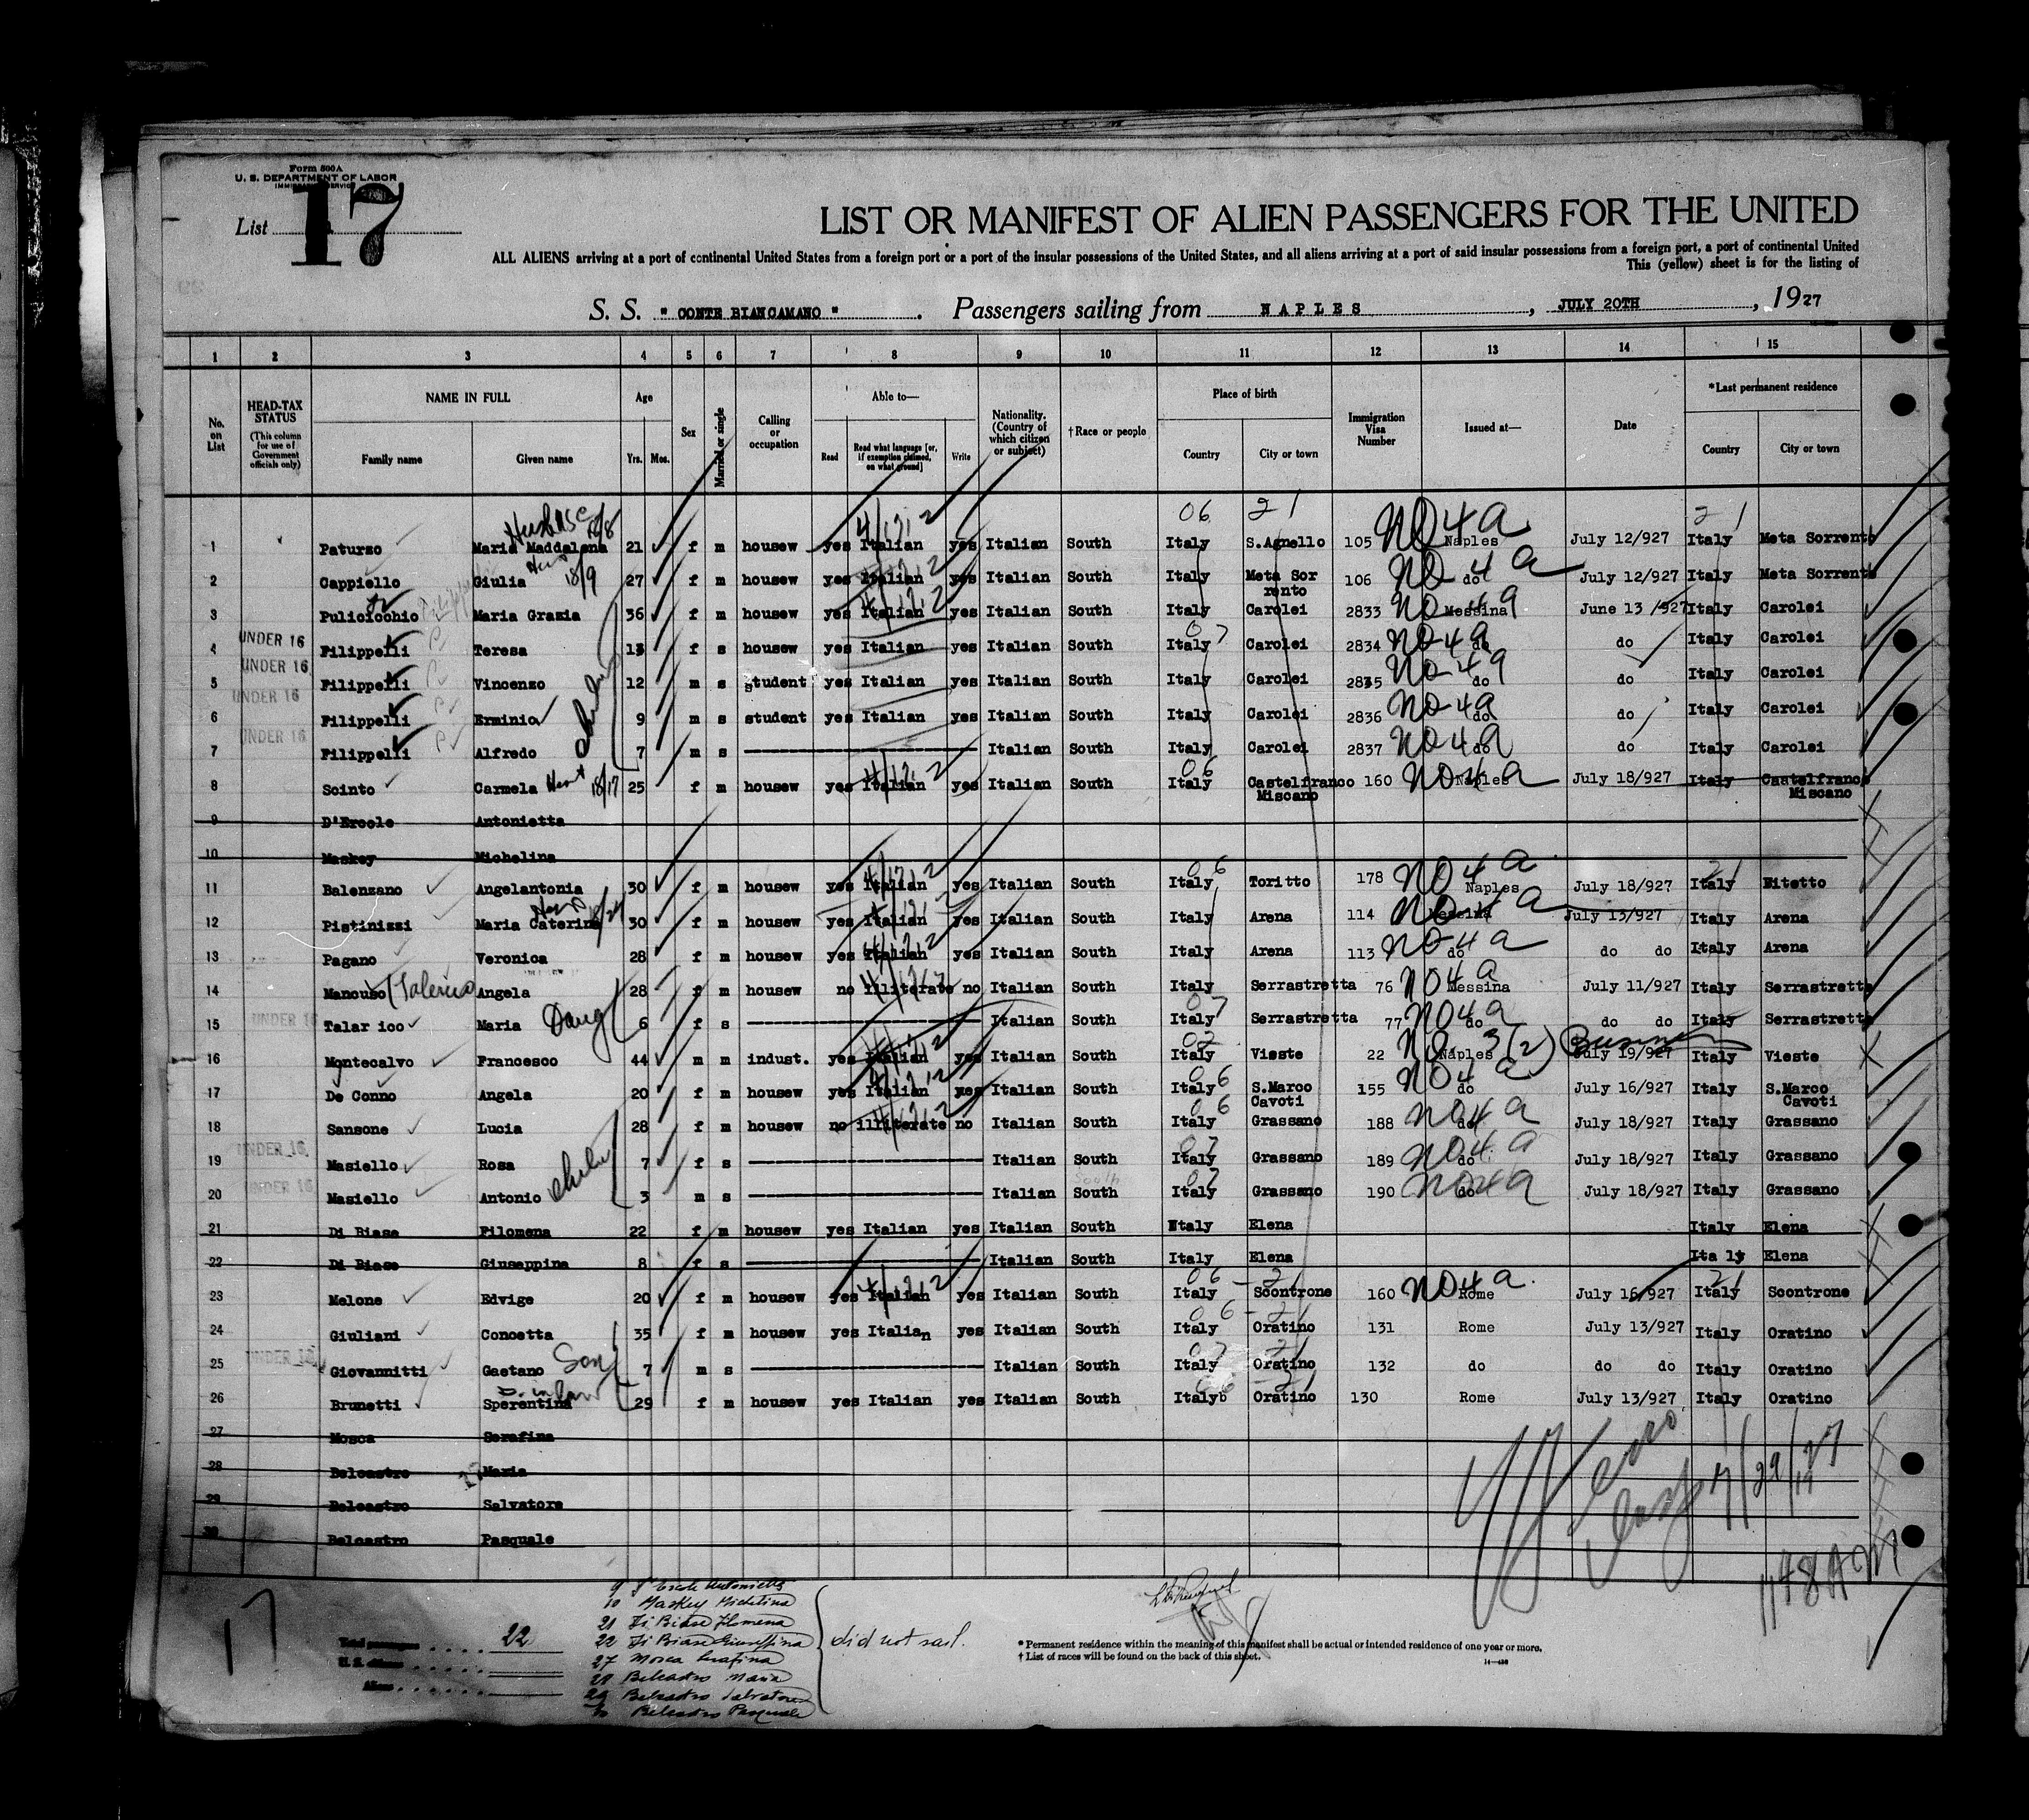 Form 500A
U. S. DEPARTMENT OF LABOR
IMMIGRATION SERVICE
List 17
LIST OR MANIFEST OF ALIEN PASSENGERS FOR THE UNITED
ALL ALIENS arriving at a port of continental United States from a foreign port or a port of the insular possessions of the United States, and all aliens arriving at a port of said insular possessions from a foreign port, a port of continental United
This (yellow) sheet is for the listing of
S. S. " CONTE BIANCAMANO ". Passengers sailing from NAPLES, JULY 20TH, 1927
1 2 3 4 5 6 7 8 9 10 11 12 13 14 15
No. on List
HEAD-TAX STATUS (This column for use of Government officials only)
NAME IN FULL Family name Given name
Age Yrs. Mos.
Sex
Married or single
Calling or occupation
Able to— Read Read what language [or, if exemption claimed, on what ground] Write
Nationality. (Country of which citizen or subject)
†Race or people
Place of birth Country City or town
Immigration Visa Number
Issued at—
Date
*Last permanent residence Country City or town
06 21 21
1 Paturzo Maria Maddalena 21 f m housew yes Italian yes Italian South Italy S.Agnello 105 NO 4a Naples July 12/927 Italy Meta Sorrento
2 Cappiello Giulia 18/9 27 f m housew yes Italian yes Italian South Italy Meta Sorrento 106 NO 4a do July 12/927 Italy Meta Sorrento
3 Puliciochio Maria Grazia 36 f m housew yes Italian yes Italian South Italy Carolei 2833 NO 4a Messina June 13/927 Italy Carolei
UNDER 16 4 Filippelli Teresa 13 f s housew yes Italian yes Italian South Italy 07 Carolei 2834 NO 4a do do Italy Carolei
UNDER 16 5 Filippelli Vincenzo 12 m s student yes Italian yes Italian South Italy Carolei 2835 NO 4a do do Italy Carolei
UNDER 16 6 Filippelli Erminio 9 m s student yes Italian yes Italian South Italy Carolei 2836 NO 4a do do Italy Carolei
UNDER 16 7 Filippelli Alfredo 7 m s Italian South Italy Carolei 2837 NO 4a do do Italy Carolei
8 Scinto Carmela 18/17 25 f m housew yes Italian yes Italian South Italy 06 Castelfranco Miscano 160 NO 4a Naples July 18/927 Italy Castelfranco Miscano
9 D'Ercole Antonietta
10 Maskey Michelina
11 Balenzano Angelantonia 30 f m housew yes Italian yes Italian South Italy 06 Toritto 178 NO 4a Naples July 18/927 Italy Bitetto
12 Pistinizzi Maria Caterina 30 f m housew yes Italian yes Italian South Italy Arena 114 NO 4a Messina July 13/927 Italy Arena
13 Pagano Veronica 28 f m housew yes Italian yes Italian South Italy Arena 113 NO 4a do do do Italy Arena
14 Mancuso Angela 28 f m housew no illiterate no Italian South Italy Serrastretta 76 NO 4a Messina July 11/927 Italy Serrastretta
UNDER 16 15 Talar ico Maria Daug 6 f s Italian South Italy 07 Serrastretta 77 NO 4a do do do Italy Serrastretta
16 Montecalvo Francesco 44 m m indust. yes Italian yes Italian South Italy Vieste 22 NO 3(2) Naples July 19/927 Italy Vieste
17 De Conno Angela 20 f m housew yes Italian yes Italian South Italy 06 S.Marco Cavoti 155 NO 4a do July 16/927 Italy S.Marco Cavoti
18 Sansone Lucia 28 f m housew no illiterate no Italian South Italy 06 Grassano 188 NO 4a do July 18/927 Italy Grassano
UNDER 16 19 Masiello Rosa 7 f s Italian South Italy 07 Grassano 189 NO 4a do July 18/927 Italy Grassano
UNDER 16 20 Masiello Antonio 3 m s Italian South Italy 07 Grassano 190 NO 4a do July 18/927 Italy Grassano
21 Di Biase Filomena 22 f m housew yes Italian yes Italian South Italy Elena Italy Elena
22 Di Biase Giuseppina 8 f s Italian South Italy Elena Ita ly Elena
23 Melone Edvige 20 f m housew yes Italian yes Italian South Italy 06 Scontrone 160 NO 4a Rome July 16/927 Italy Scontrone
24 Giuliani Concetta 35 f m housew yes Italian yes Italian South Italy 06 Oratino 131 Rome July 13/927 Italy Oratino
UNDER 16 25 Giovannitti Gaetano Son 7 m s Italian South Italy 07 Oratino 132 do do do Italy Oratino
26 Brunetti Sperentina 29 f m housew yes Italian yes Italian South Italyb Oratino 130 Rome July 13/927 Italy Oratino
27 Mosca Serafina
28 Belcastro Maria
29 Belcastro Salvatore
30 Belcastro Pasquale
7/29/27
1148 AM
17
Total passengers 22
U. S. citizens
Aliens
9 D'Ercole Antonietta
10 Maskey Michelina
21 Di Biase Filomena
22 Di Biase Giuseppina
27 Mosca Serafina
28 Belcastro Maria
29 Belcastro Salvatore
30 Belcastro Pasquale
did not sail.
* Permanent residence within the meaning of this manifest shall be actual or intended residence of one year or more.
† List of races will be found on the back of this sheet.